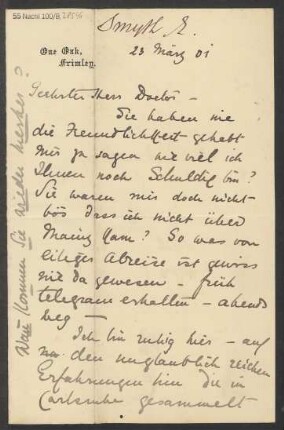 55 Nachl 100/B,
Smyth E.
One Oak,
Frimley.
23 März 01
Geehrter Herr Doctor –
Sie haben nie
die Freundlichkeit gehabt
mir zu sagen wie viel ich
Ihnen noch schuldig bin?
Sie waren mir doch nicht
bös dass ich nicht über
Mainz kam? So was von
eiliger Abreise ist gewiss
nie da gewesen – früh
telegram erhalten – abends
weg –
Ich bin ruhig hier – auf
den unglaublich reichen
Erfahrungen hin die in
Carlsruhe gesammelt
Wann kommen Sie wieder hierher?